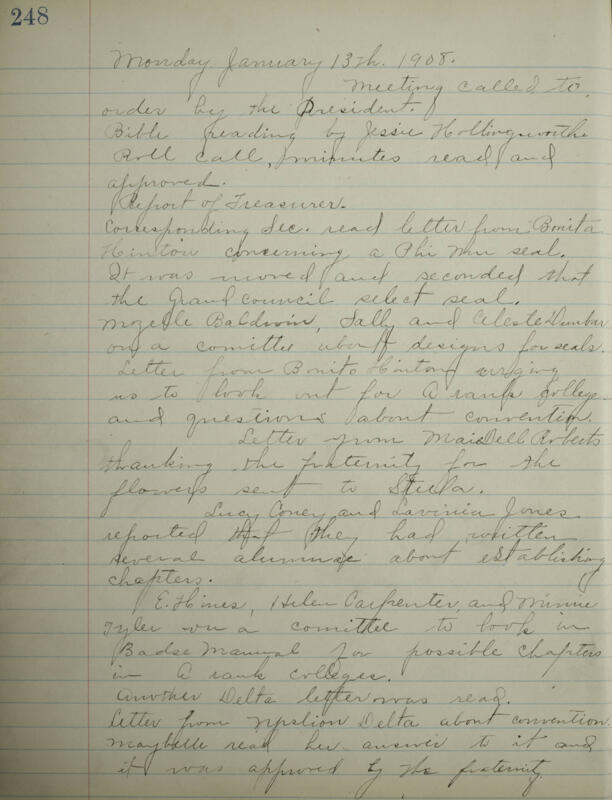 248
Monday January 13th. 1908.
Meeting called to
order by the President.
Bible reading by Jessie Hollingsworthe
Roll call, minutes read and
approved.
Report of Treasurer.
Corresponding Sec. read letter from Bonita
Hinton concerning a Phi Mu seal.
It was moved and seconded that
the Grand council select seal.
Mozelle Baldwin, Sally and Celeste Dunbar
on a comitte about designs for seals.
Letter from Bonita Hinton urging
us to look out for A rank college
and questions about convention.
Letter from Maidell Roberts
thanking the fraternity for the
flowers sent to Stella.
Lucy Coney and Lavinia Jones
reported that they had written
several alumnae about establishing
chapters.
E. Hines, Helen Carpenter, and Minnie
Tyler on a comittee to look in
Badse Manual for possible chapters
in A rank colleges.
Another Delta letter was read.
Letter from Upsilon Delta about convention.
Maybelle read her answer to it and
it was approved by the fraternity